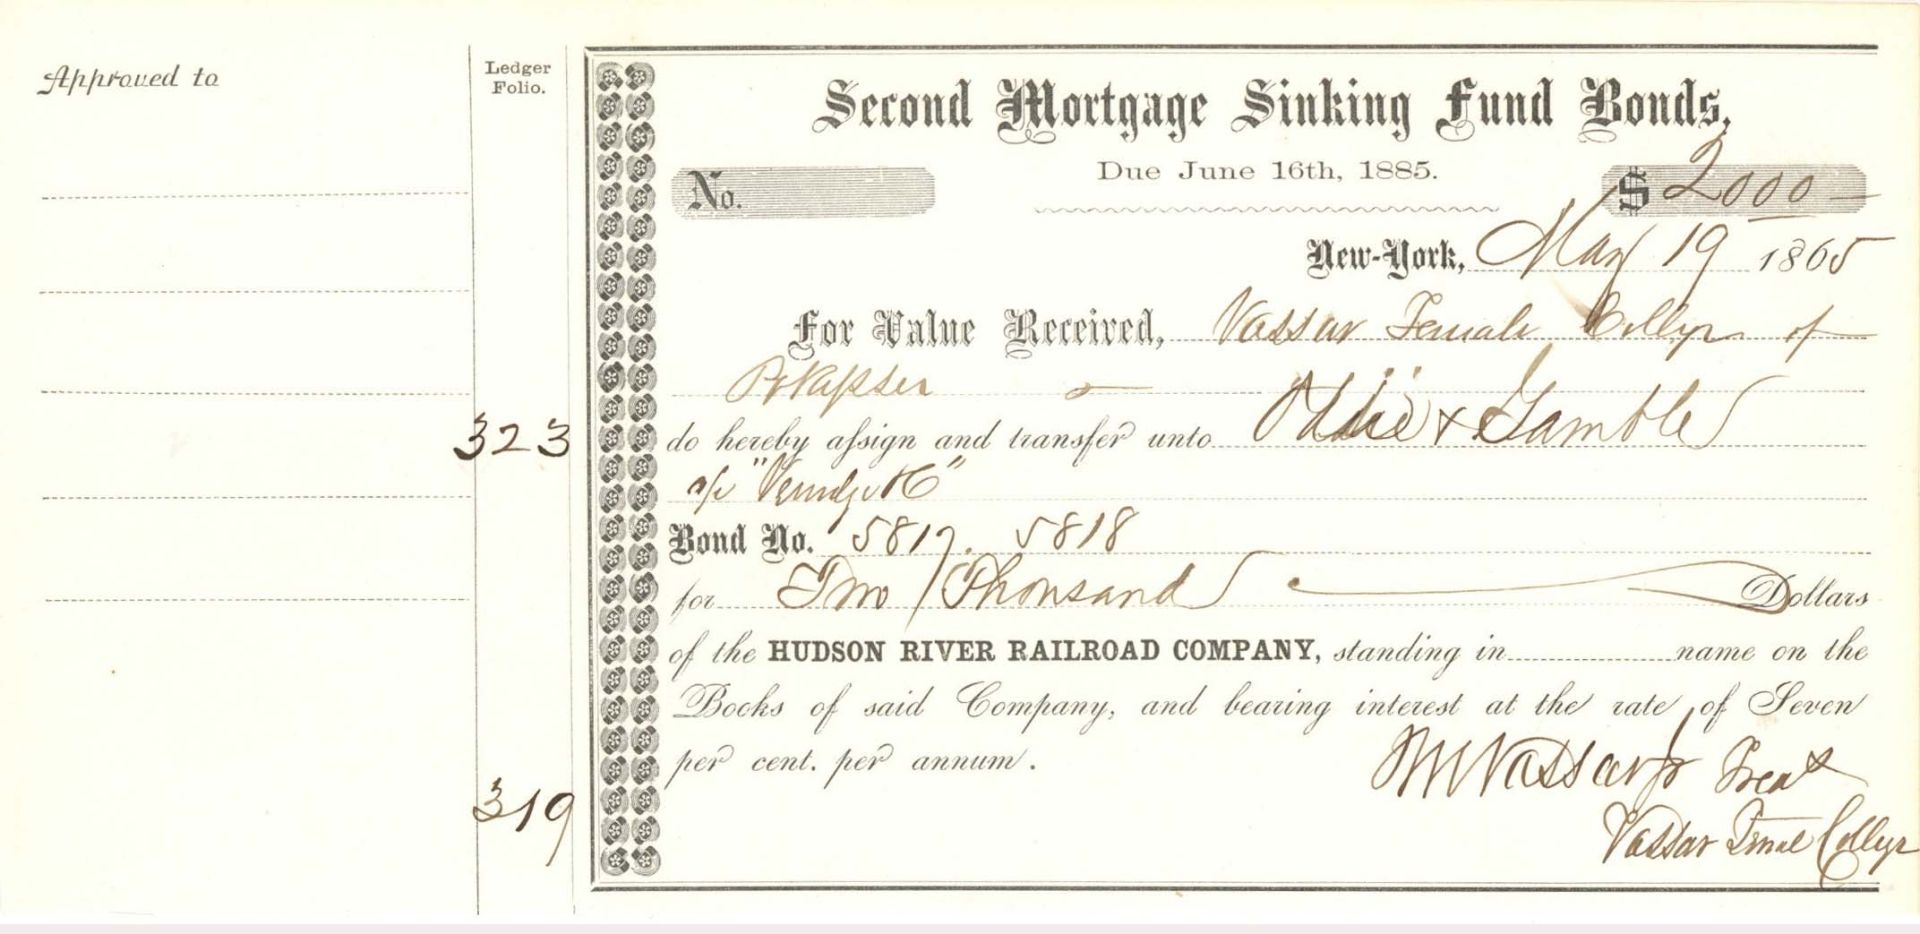 Approved to
Ledger
Folio.
323
319
Second Mortgage Sinking Fund Bonds,
Due June 16th, 1885.
No.
$ 2000
New-York, May 19 1865
For Value Received, Vassar Female College of
Pokepsee
do hereby assign and transfer unto & Gamble
a/c
Bond No. 5817. 5818
for Two Thousand Dollars
of the HUDSON RIVER RAILROAD COMPANY, standing in name on the
Books of said Company, and bearing interest at the rate of Seven
per cent. per annum.
M Vassar Jr Treas
Vassar Female College